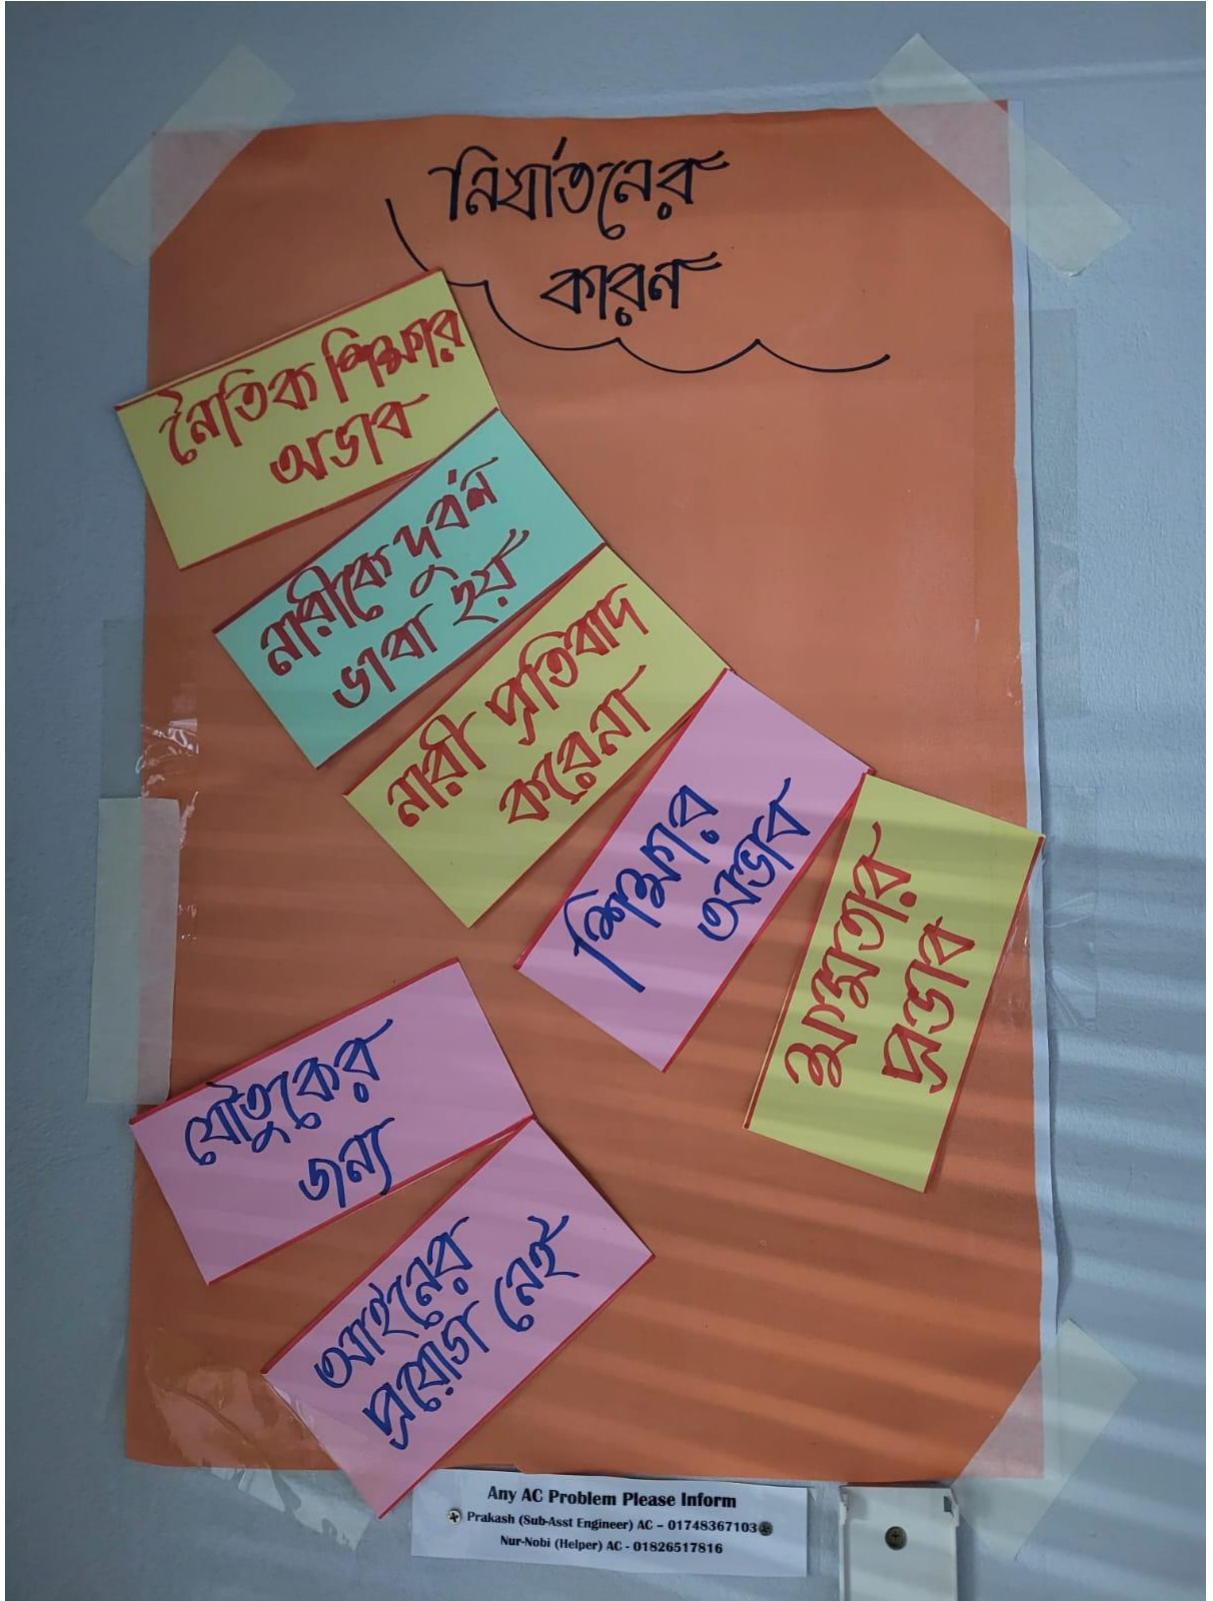 নির্যাতনের
কারন
নৈতিক শিক্ষার
অভাব
নারীকে দুর্বল
ভাবা হয়
নারী প্রতিবাদ
করেনা
শিক্ষার
অভাব
ক্ষমতার
প্রভাব
যৌতুকের
জন্য
আইনের
প্রয়োগ নেই
Any AC Problem Please Inform
Prakash (Sub-Asst Engineer) AC – 01748367103
Nur-Nobi (Helper) AC - 01826517816